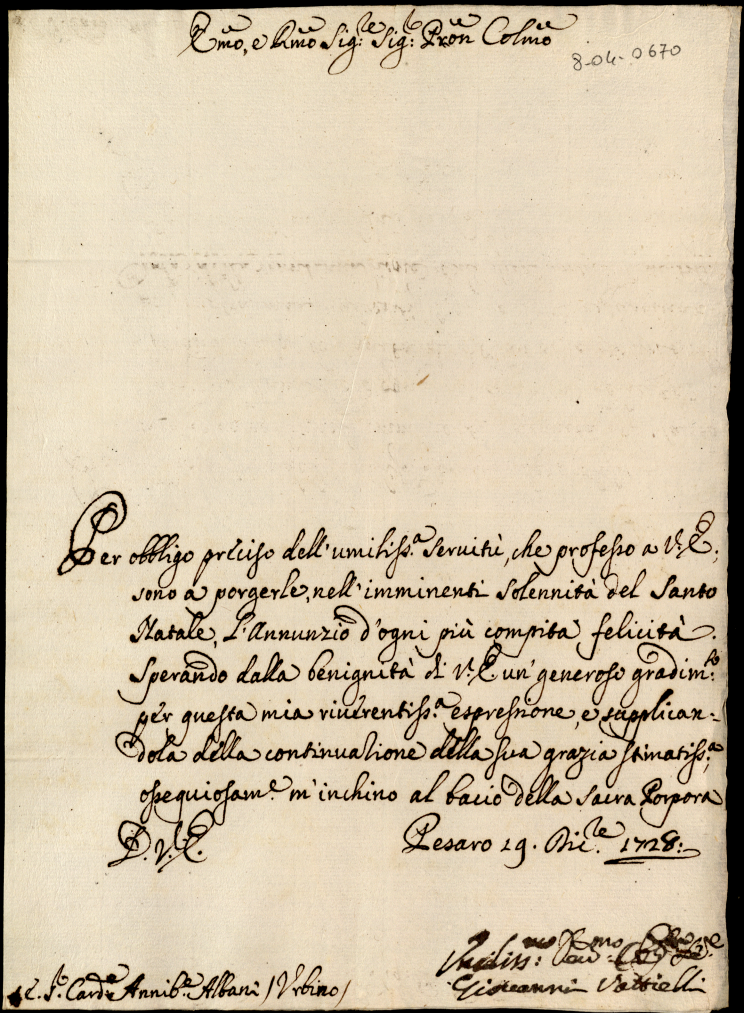 Emo, e Rmo Sig:re Sig:r Pron Colmo
8-04-0670
Per obbligo preciso dell'umiliss:a servitù, che professo a V:E:,
sono a porgerle, nell'imminenti solennità del Santo
Natale, l'Annunzio d'ogni più compita felicità.
Sperando dalla benignità di V:E un' generoso gradim:to
per questa mia riverentiss:a espressione, e supplican=
dola della continuatione della sua grazia stimatiss:a,
ossequiosam:e m'inchino al bacio della Sacra Porpora
D. V. E.
Pesaro 19. Dic:re 1728:
Card:e Annib:e Albani /Urbino/
Giovanni